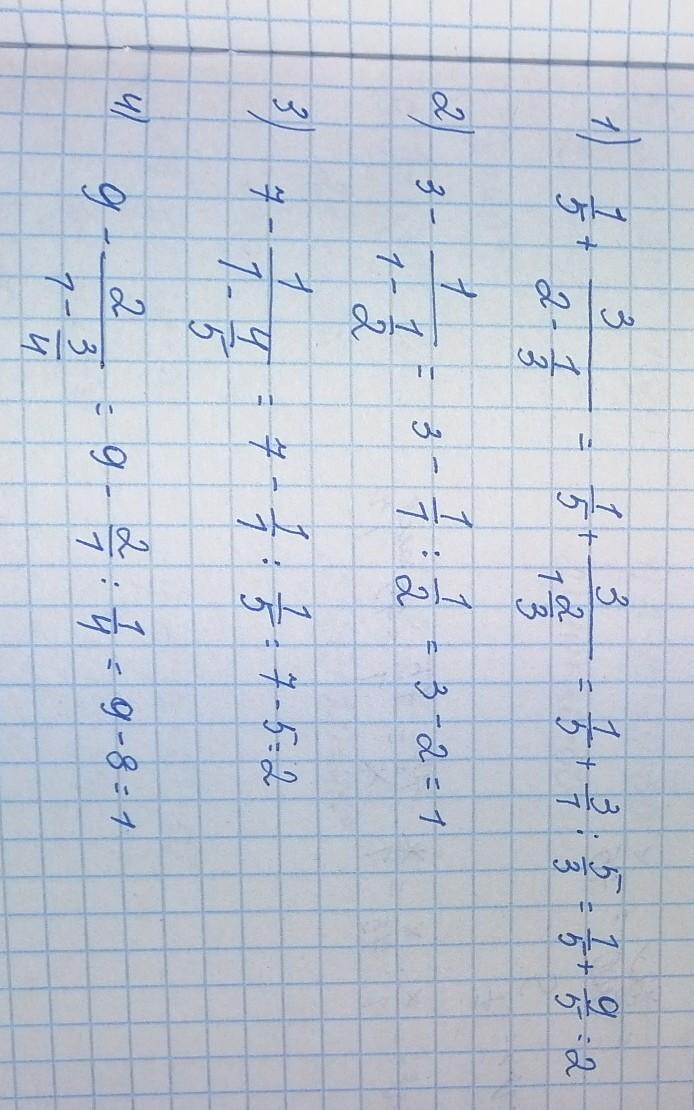 1) 1/5 + 3/(2 - 1/3) = 1/5 + 3/(1 2/3) = 1/5 + 3/1 : 5/3 = 1/5 + 9/5 = 2
2) 3 - 1/(1 - 1/2) = 3 - 1/1 : 1/2 = 3 - 2 = 1
3) 7 - 1/(1 - 4/5) = 7 - 1/1 : 1/5 = 7 - 5 = 2
4) 9 - 2/(1 - 3/4) = 9 - 2/1 : 1/4 = 9 - 8 = 1